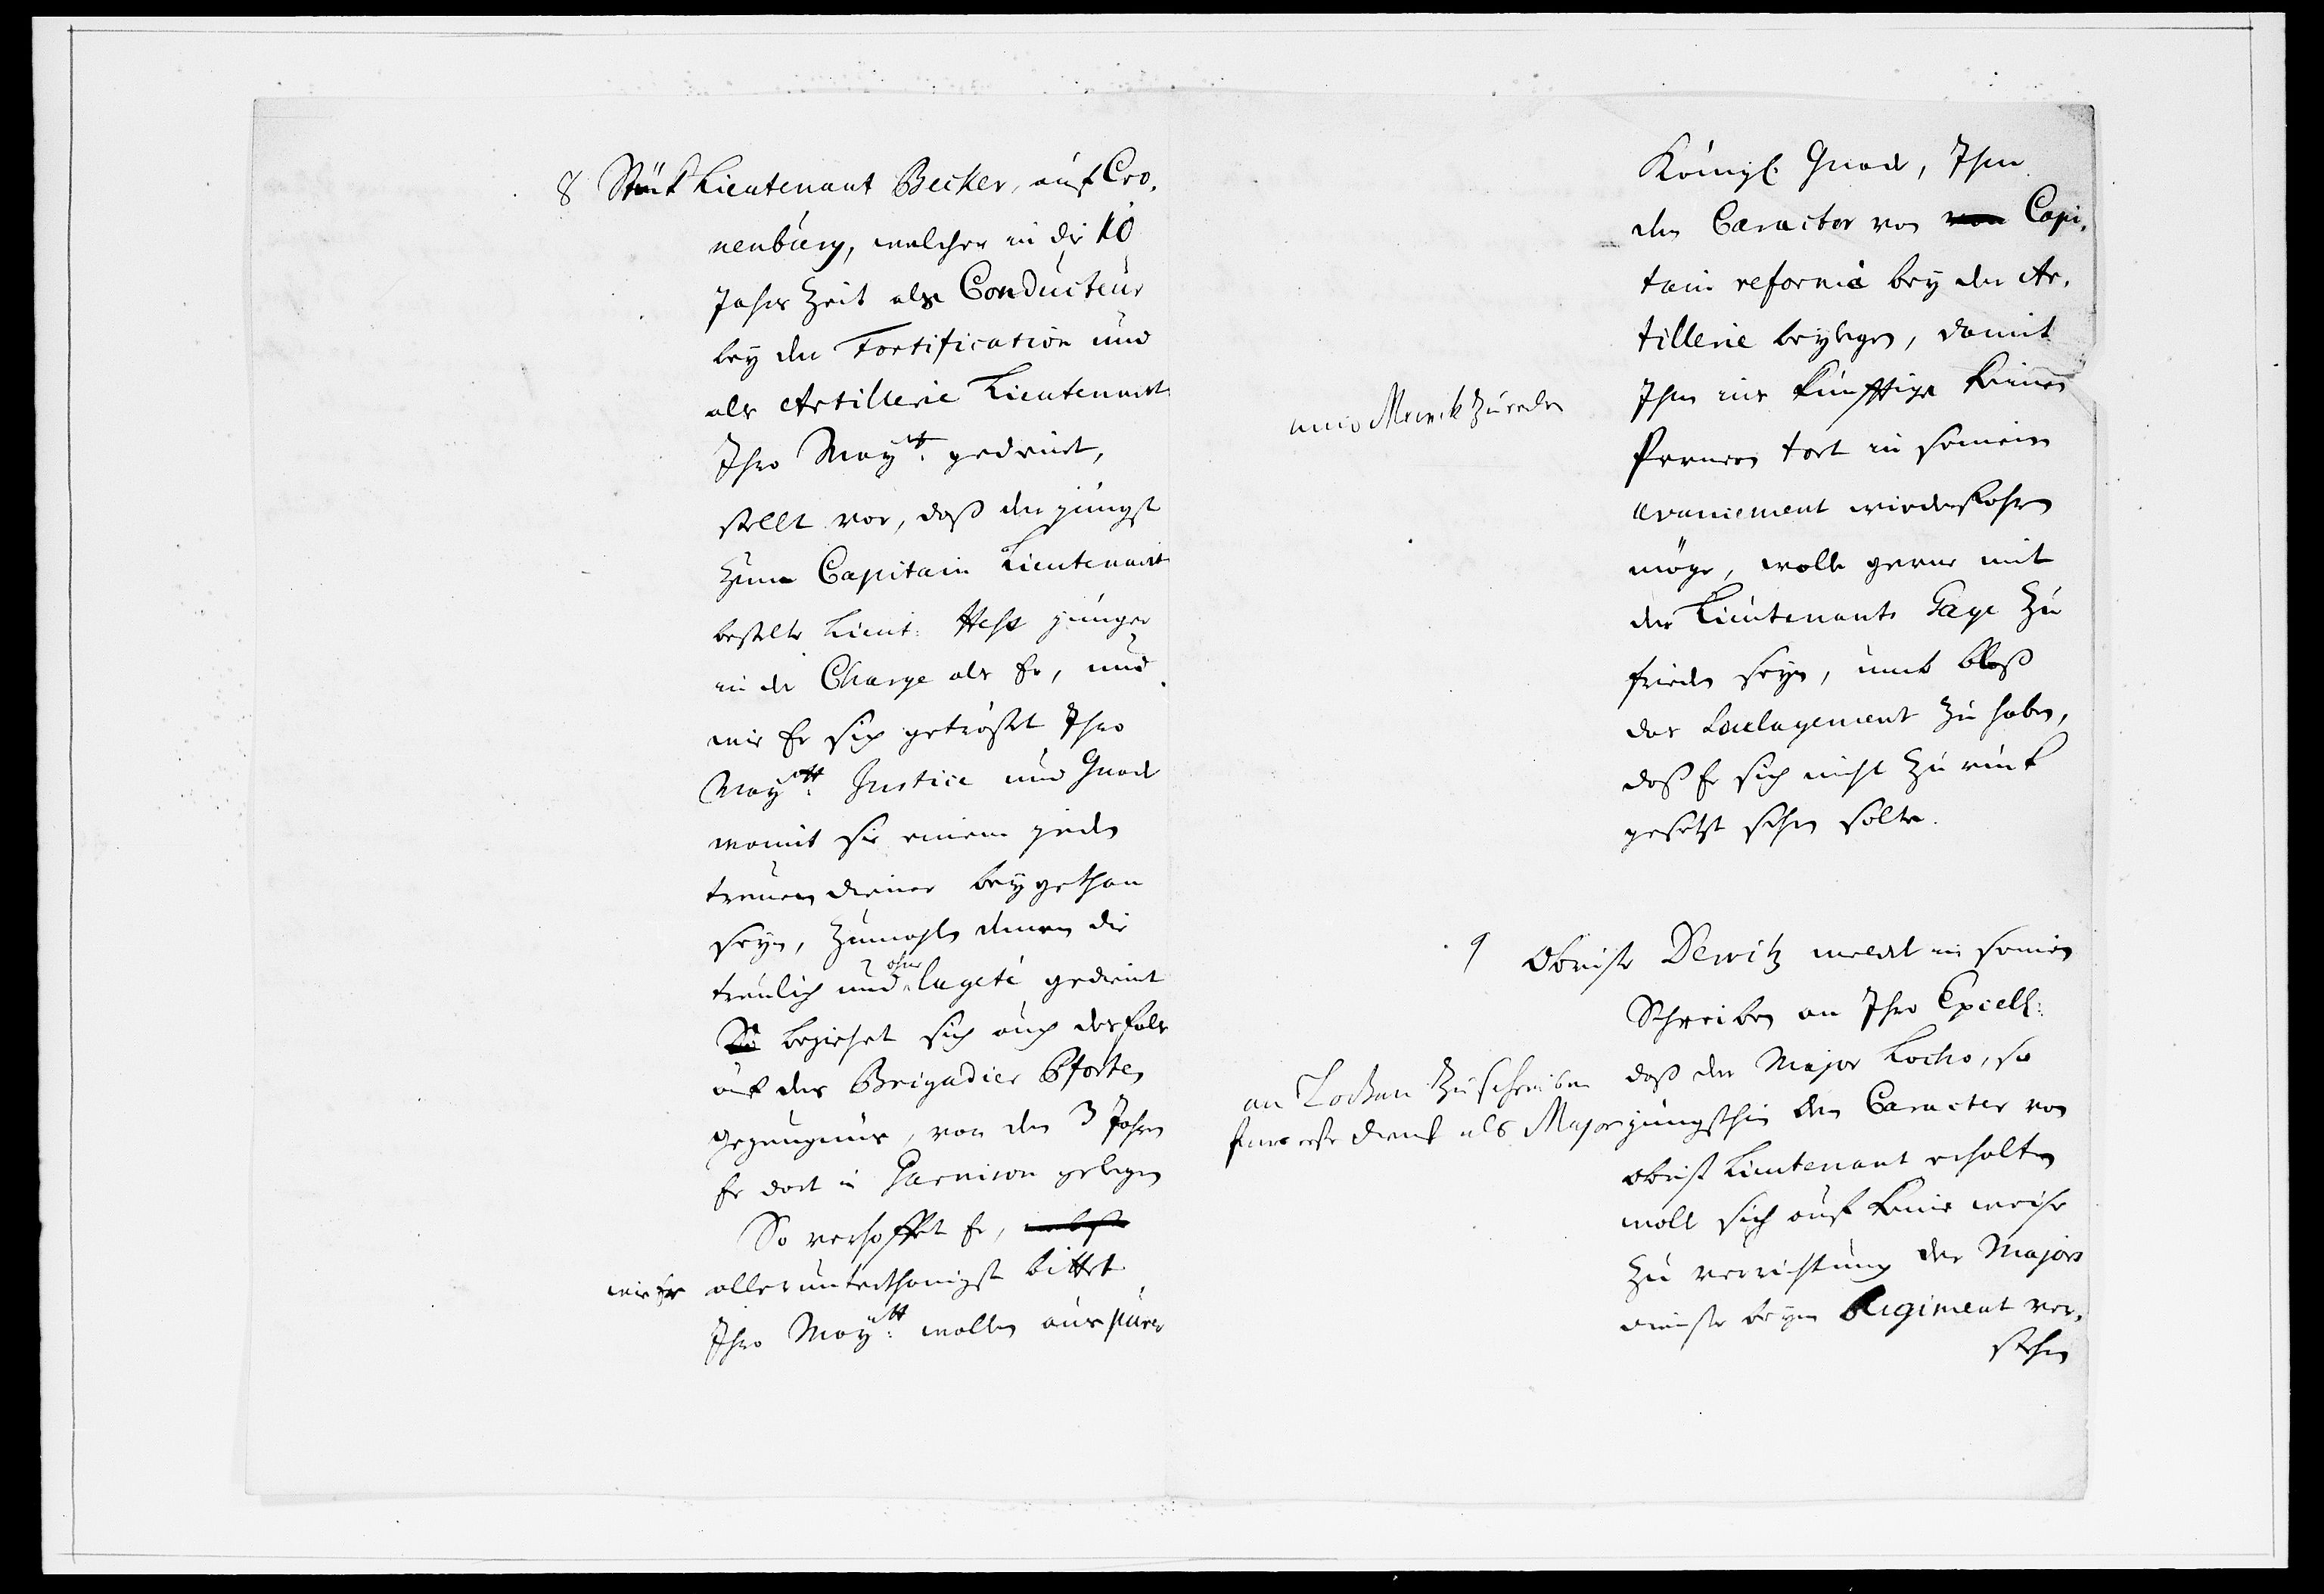 8 Stück Lieutenant Becker, auf Cro,
nenburg, welcher in die 10
Jahr Zeit als Conducteur
bey der Fortification und
als Artillerie Lieutenant
Ihro Maytt: gedient,
stellt vor, daß der jüngst
zum Capitain Lieutenant
bestelte Lieut: Hess jünger
in der Charge als Er, und
wie Er sich getröstet Ihro
Maytt: Justice und Gnade
womit sie einem jeden
treuen diener beygethan
seyn, Zumahlen denen die
treulich und ohne lageté gedient
beziehet sich auch desfals
auf des Brigadier Pforten
gezeugnüs, von den 3 Jahren
Er dort in Garnison gelegen
So verhoffet Er,
wie Er allerunterthänigst bittet
Ihro Maytt: wollen aus purer
Königl: Gnade, Ihm
den Caracter von Capi,
tain reformé bey der Ar,
tillerie beylegen, damit
Ihm ins künfftige keinen
fernern tort in seinem
avancement wiederfahren
möge, wolle gerne mit
der Lieutenants Gage Zu
frieden seyn, umb bloß
das Soulagement Zu haben,
daß Er sich nicht Zurück
gesetzt sehen solte.
Zureden
9 Obrister Dewitz meldet in seinem
Schreiben an Ihro Excell:
daß der Major Locho, so
jüngsthin den Caracter von
Obrist Lieutenant erhalten
woll sich auf keine weise
Zu verrichtung der Majors
dienste beym Regiment ver,
stehen
an Lochau Zuschreiben
dienst als Major